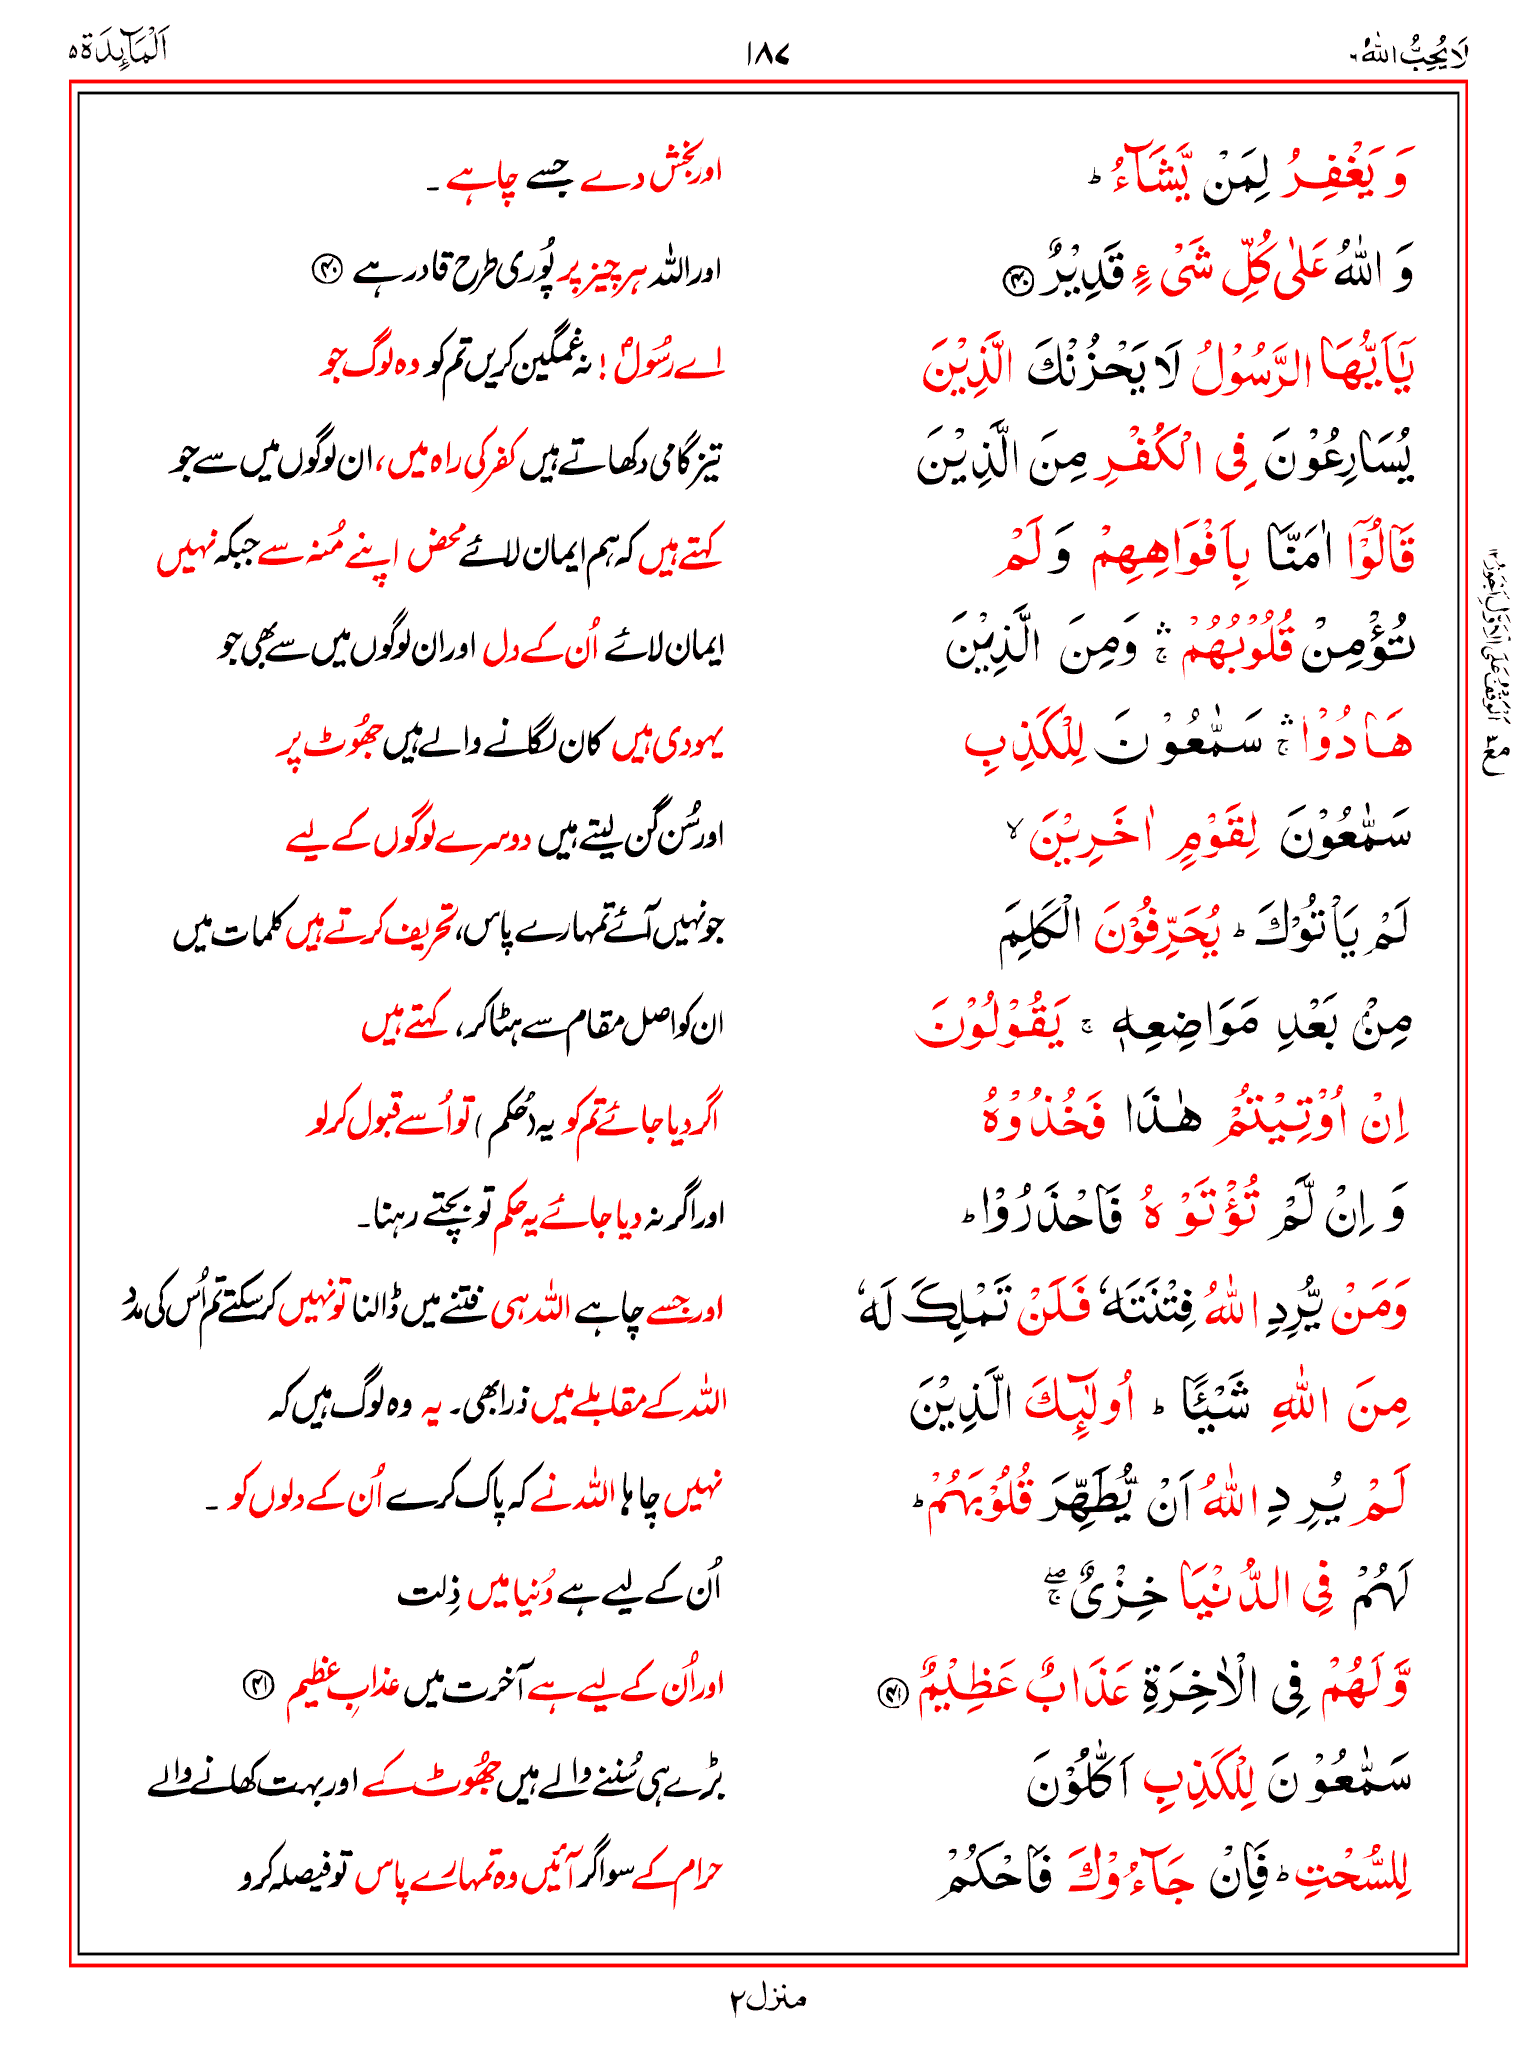 لَا یُحِبُّ اللّٰهُ ٦
١٨٧
اَلْمَآىِٕدَة ٥
وَ یَغْفِرُ لِمَنْ یَّشَآءُ ؕ
اور بخش دے جسے چاہے ۔
وَ اللّٰهُ عَلٰى كُلِّ شَیْءٍ قَدِیْرٌ ﴿۴۰﴾
اور اللہ ہر چیز پر پُوری طرح قادر ہے ﴿۴۰﴾
یٰۤاَیُّهَا الرَّسُوْلُ لَا یَحْزُنْكَ الَّذِیْنَ
اے رسُولؐ ! نہ غمگین کریں تم کو وہ لوگ جو
یُسَارِعُوْنَ فِی الْكُفْرِ مِنَ الَّذِیْنَ
تیز گامی دکھاتے ہیں کفر کی راہ میں، ان لوگوں میں سے جو
قَالُوْۤا اٰمَنَّا بِاَفْوَاهِهِمْ وَ لَمْ
کہتے ہیں کہ ہم ایمان لائے محض اپنے مُنہ سے جبکہ نہیں
تُؤْمِنْ قُلُوْبُهُمْ ۛۚ وَمِنَ الَّذِیْنَ
ایمان لائے اُن کے دل اور ان لوگوں میں سے بھی جو
هَادُوْا ۛۚ سَمّٰعُوْنَ لِلْكَذِبِ
یہودی ہیں کان لگانے والے ہیں جھُوٹ پر
سَمّٰعُوْنَ لِقَوْمٍ اٰخَرِیْنَ ۙ
اور سُن گن لیتے ہیں دوسرے لوگوں کے لیے
لَمْ یَاْتُوْكَ ؕ یُحَرِّفُوْنَ الْكَلِمَ
جو نہیں آئے تمہارے پاس، تحریف کرتے ہیں کلمات میں
مِنْۢ بَعْدِ مَوَاضِعِهٖ ۚ یَقُوْلُوْنَ
ان کو اصل مقام سے ہٹا کر، کہتے ہیں
اِنْ اُوْتِیْتُمْ هٰذَا فَخُذُوْهُ
اگر دیا جائے تم کو یہ (حُکم) تو اُسے قبول کر لو
وَ اِنْ لَّمْ تُؤْتَوْهُ فَاحْذَرُوْا ؕ
اور اگر نہ دیا جائے یہ حکم تو بچتے رہنا۔
وَمَنْ یُّرِدِ اللّٰهُ فِتْنَتَهٗ فَلَنْ تَمْلِكَ لَهٗ
اور جسے چاہے اللہ ہی فتنے میں ڈالنا تو نہیں کر سکتے تم اُس کی مدد
مِنَ اللّٰهِ شَیْـًٔا ؕ اُولٰٓىِٕكَ الَّذِیْنَ
اللہ کے مقابلے میں ذرا بھی۔ یہ وہ لوگ ہیں کہ
لَمْ یُرِدِ اللّٰهُ اَنْ یُّطَهِّرَ قُلُوْبَهُمْ ؕ
نہیں چاہا اللہ نے کہ پاک کرے اُن کے دلوں کو ۔
لَهُمْ فِی الدُّنْیَا خِزْیٌ ۖۚ
اُن کے لیے ہے دُنیا میں ذِلت
وَّ لَهُمْ فِی الْاٰخِرَةِ عَذَابٌ عَظِیْمٌ ﴿۴۱﴾
اور اُن کے لیے ہے آخرت میں عذابِ عظیم ﴿۴۱﴾
سَمّٰعُوْنَ لِلْكَذِبِ اَكّٰلُوْنَ
بڑے ہی سُننے والے ہیں جھُوٹ کے اور بہت کھانے والے
لِلسُّحْتِ ؕ فَاِنْ جَآءُوْكَ فَاحْكُمْ
حرام کے سو اگر آئیں وہ تمہارے پاس تو فیصلہ کرو
منزل ٢